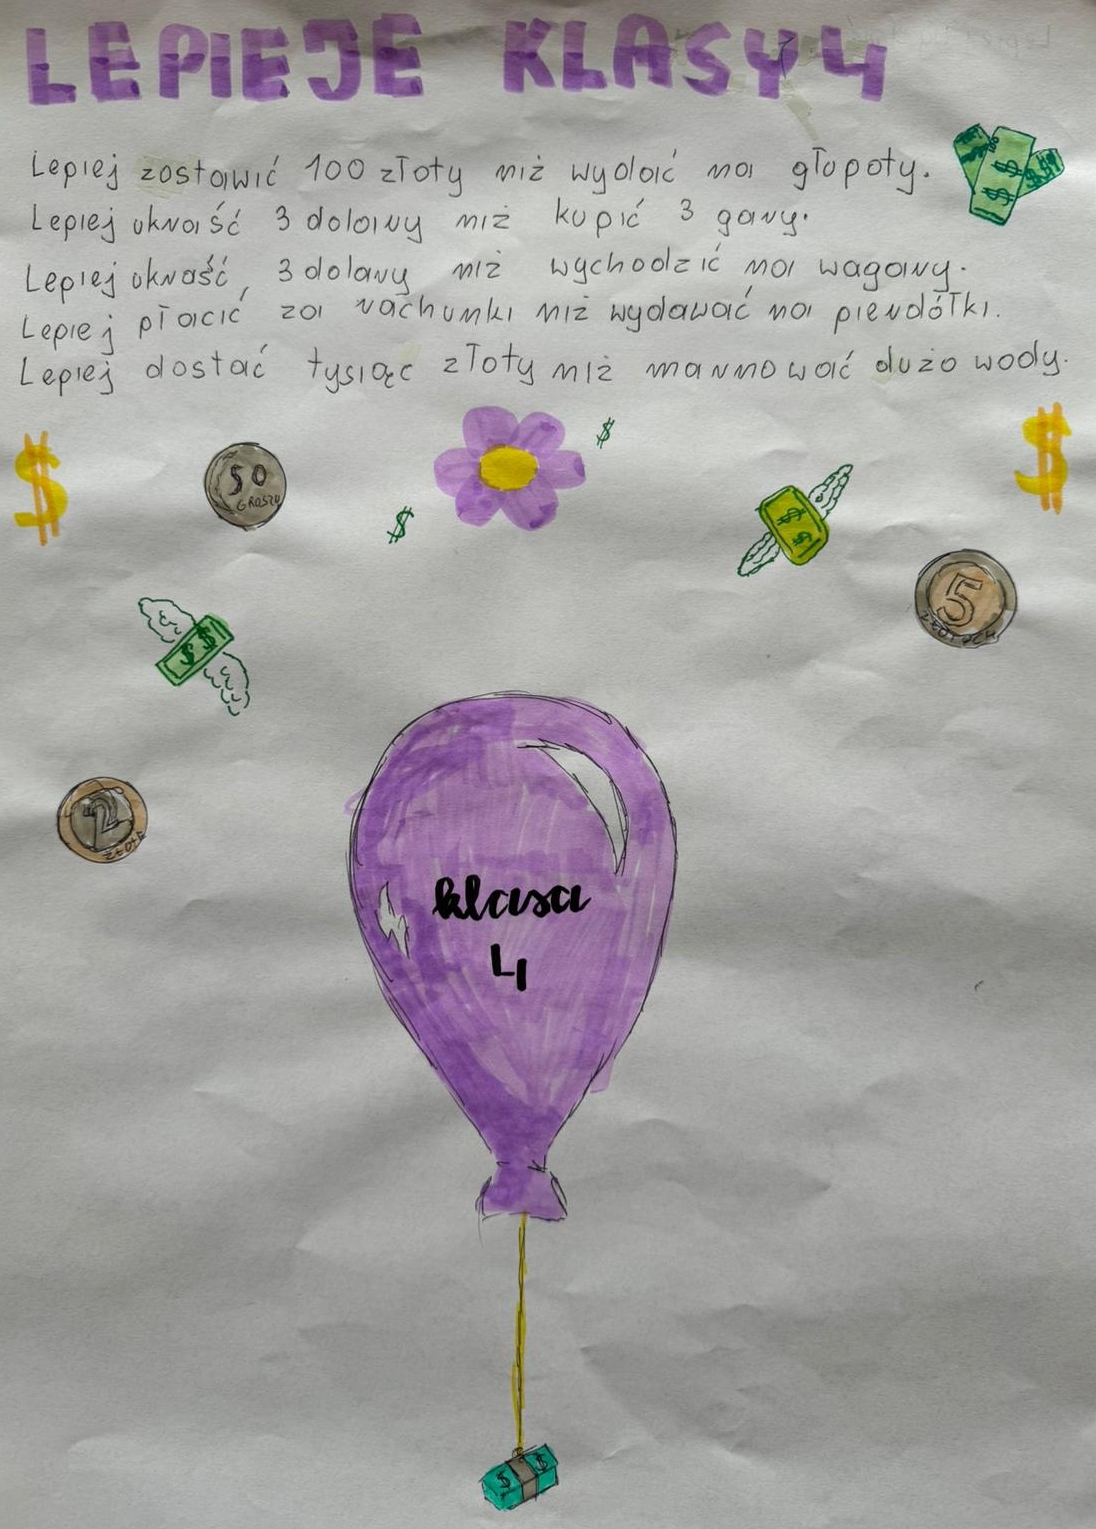 LEPIEJE KLASY 4
Lepiej zostawić 100 złoty niż wydać na głupoty.
Lepiej ukraść 3 dolary niż kupić 3 gary.
Lepiej ukraść, 3 dolary niż wychodzić na wagary.
Lepiej płacić za rachunki niż wydawać na pierdółki.
Lepiej dostać tysiąc złoty niż marnować dużo wody.
$
$
50
GROSZY
$
$
5
ZŁOTYCH
2
ZŁOTE
klasa
4